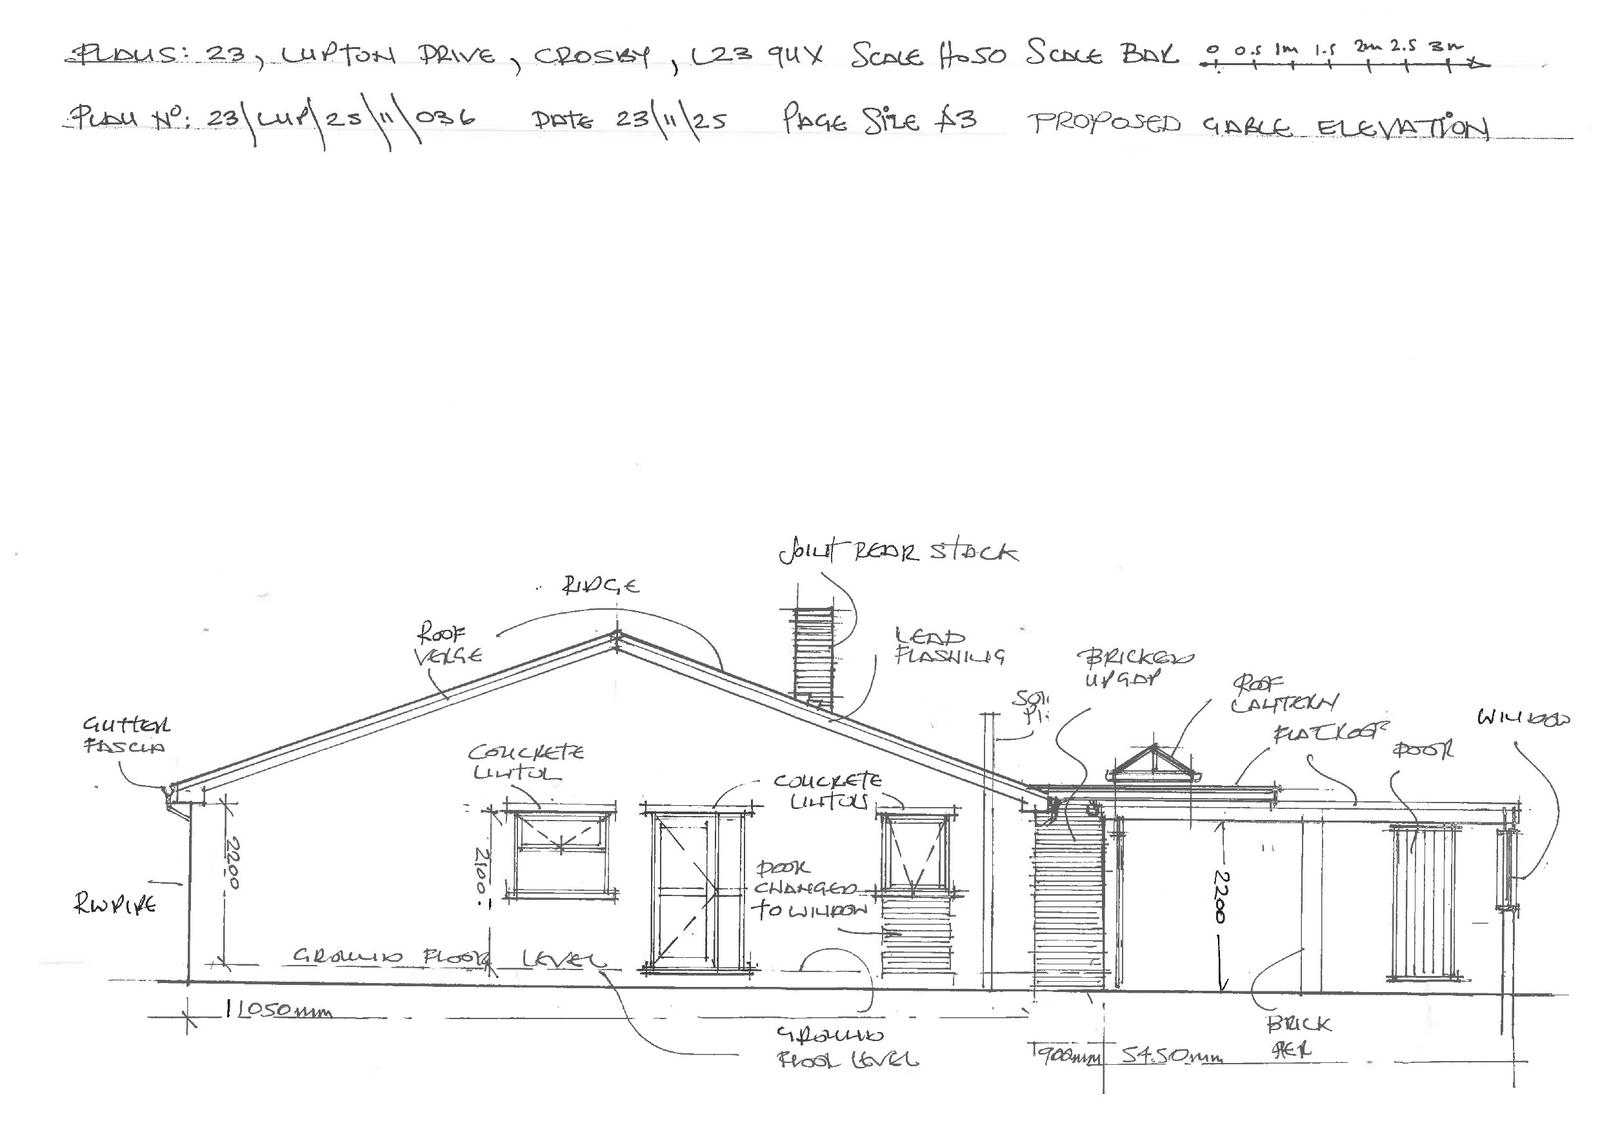 PLANS: 23, LUPTON DRIVE, CROSBY, L23 9UX SCALE 1to50 SCALE BAR 0 0.5 1m 1.5 2m 2.5 3m
PLAN Nº: 23/LUP/25/11/036 DATE 23/11/25 PAGE SIZE A3 PROPOSED GABLE ELEVATION
JOINT REAR STACK
RIDGE
ROOF
VERGE
LEAD
FLASHING
BRICKED
UP GAP
SOIL
ROOF
LANTERN
FLAT ROOF
DOOR
WINDOW
GUTTER
FASCIA
CONCRETE
LINTOL
CONCRETE
LINTOLS
2200
2100
DOOR
CHANGED
TO WINDOW
2200
RWPIPE
GROUND FLOOR LEVEL
11050mm
GROUND
FLOOR LEVEL
900mm
5450mm
BRICK
PIER